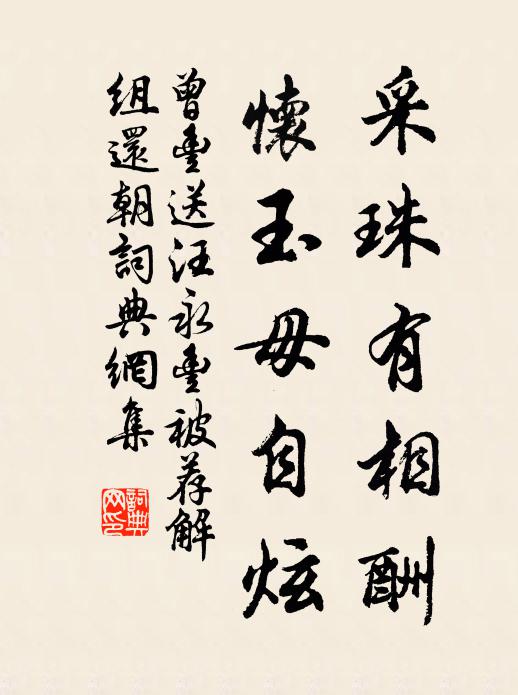 采珠有相酬
懷玉毋自炫
曾豐送汪永豐被荐解
組還朝詞典網集
詞典網印